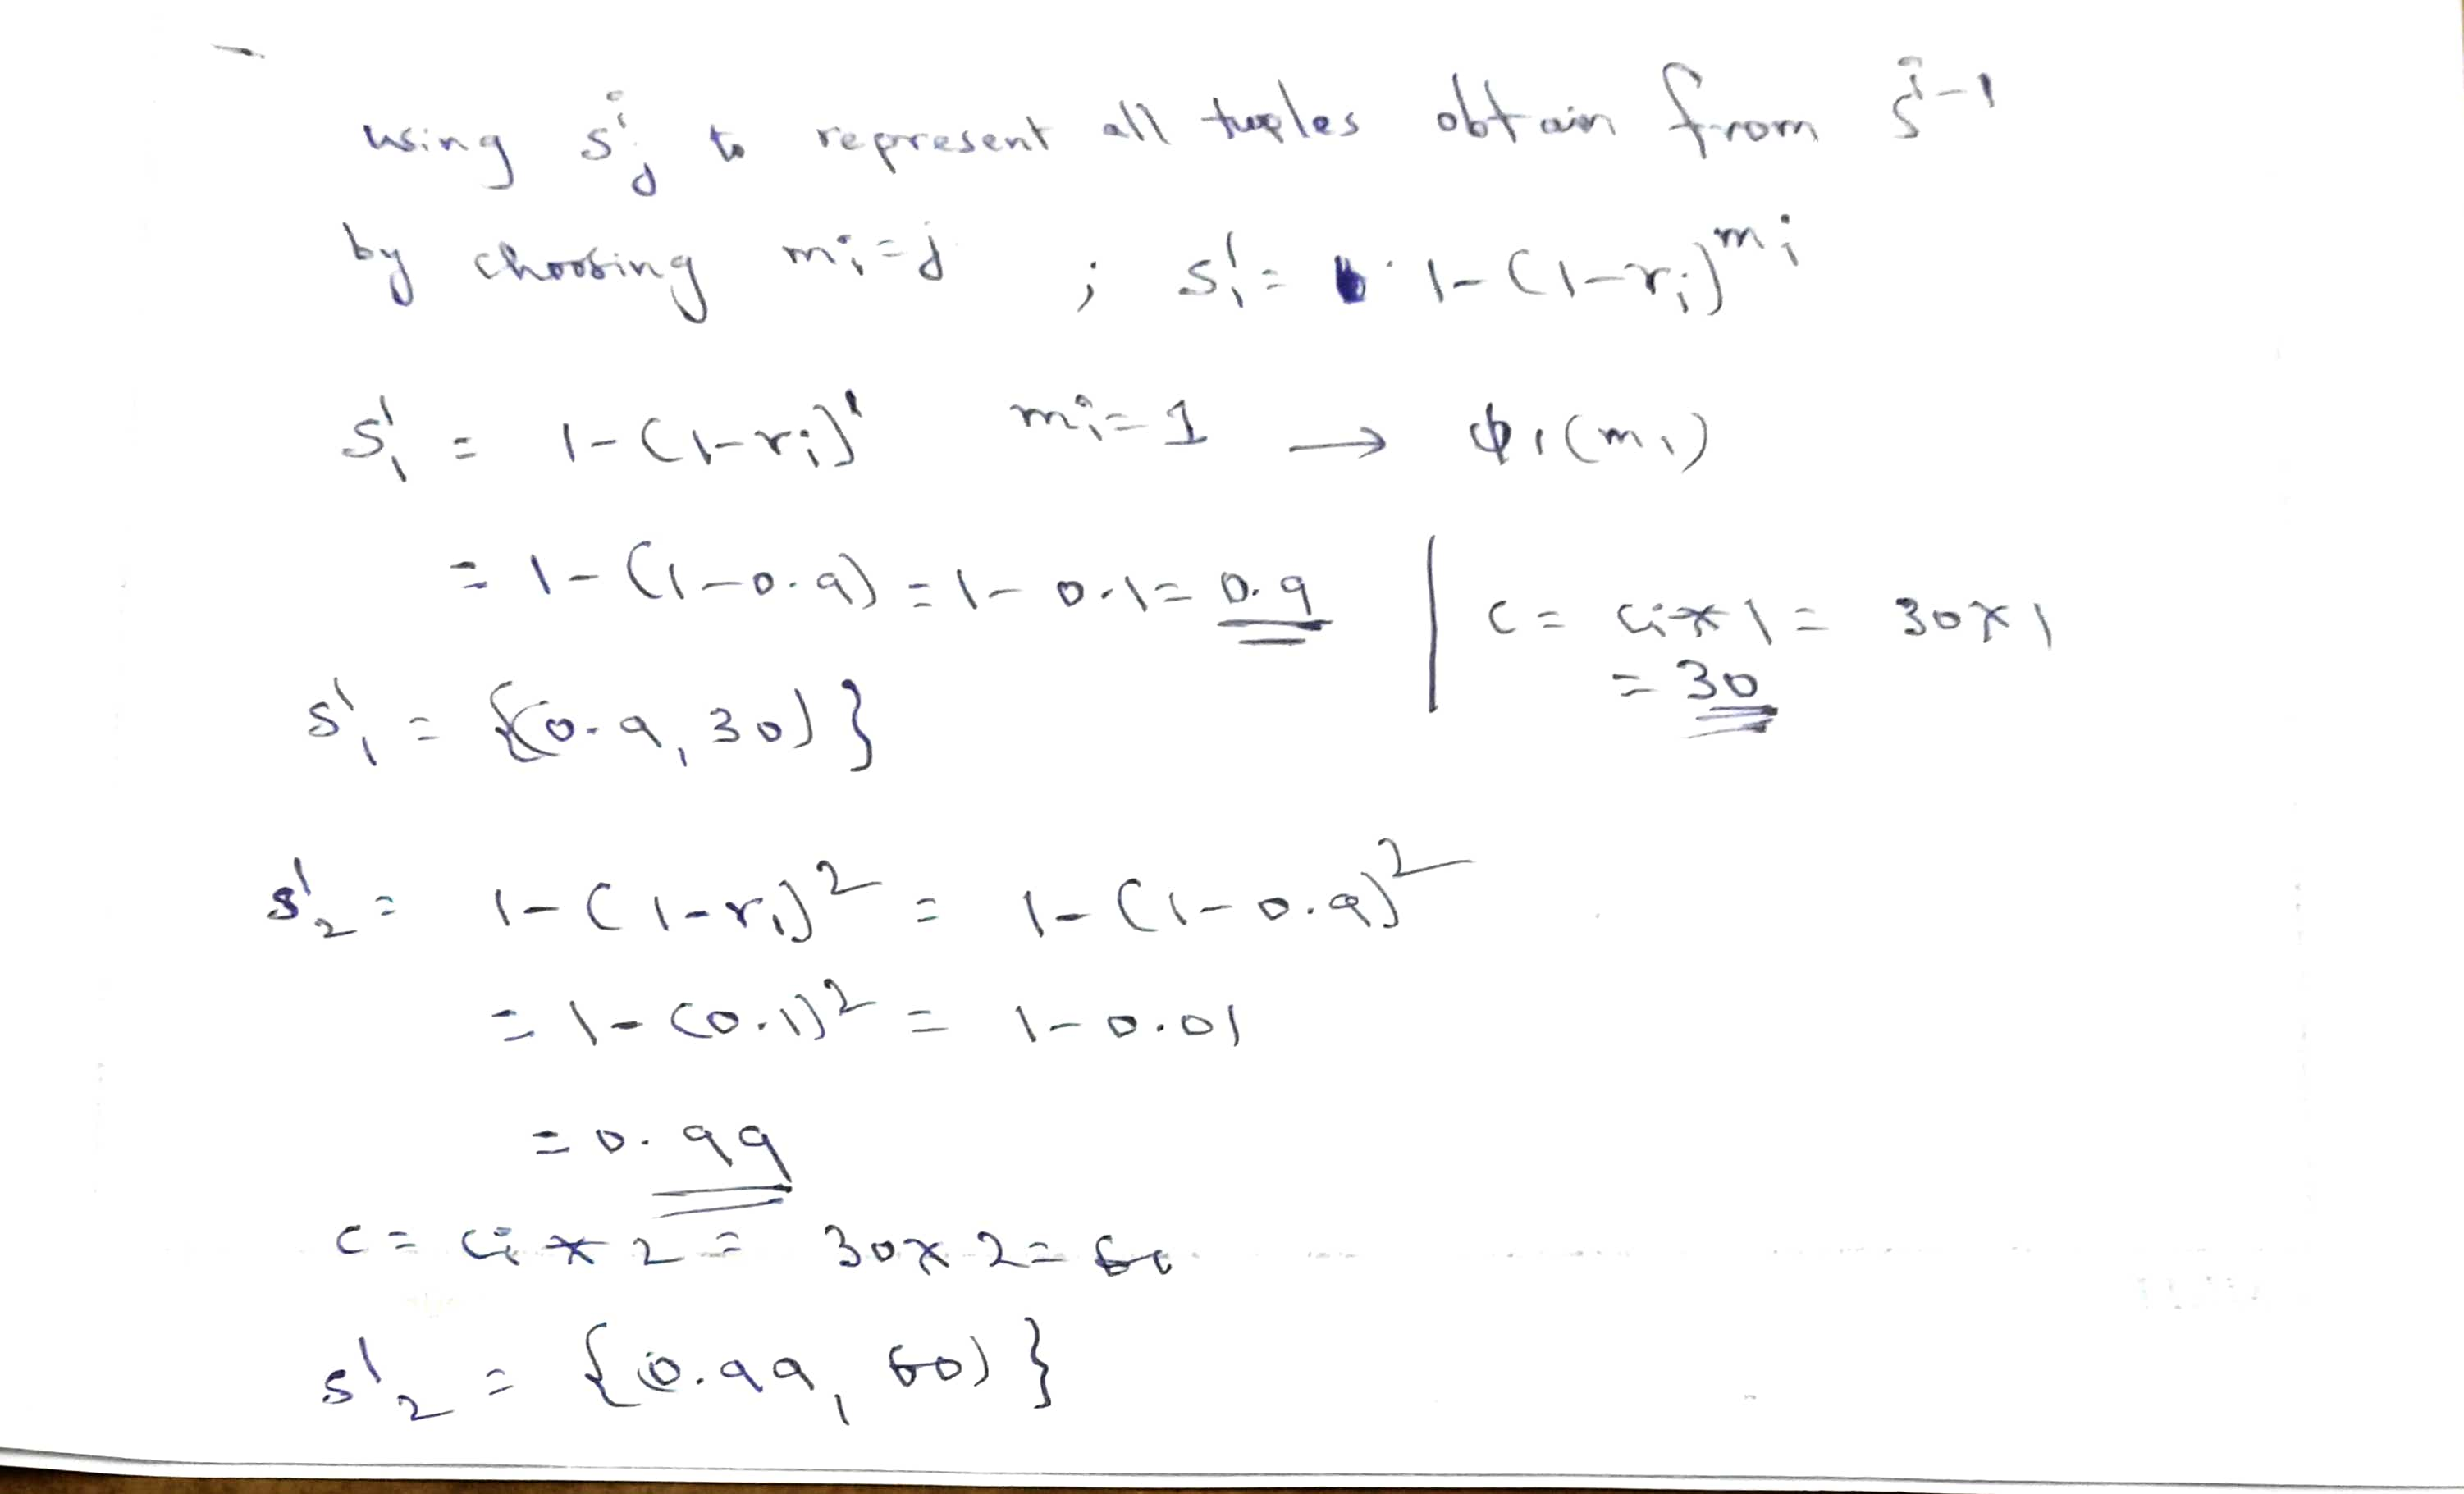 using S^i_j to represent all tuples obtain from S^i-1
by choosing m_i = j ; S^1_1 = 1-(1-r_i)^m_i
S^1_1 = 1-(1-r_i)^1 m_i = 1 → φ_1(m_1)
= 1-(1-0.9) = 1-0.1 = 0.9
C = C_i * 1 = 30 x 1
= 30
S^1_1 = {(0.9, 30)}
S^1_2 = 1-(1-r_1)^2 = 1-(1-0.9)^2
= 1-(0.1)^2 = 1-0.01
= 0.99
C = C_i * 2 = 30 x 2 = 60
S^1_2 = {(0.99, 60)}